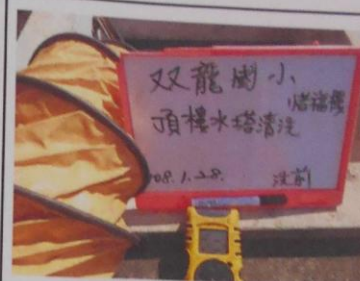 双龍國小
頂樓水塔清洗
108.1.28.
洗前